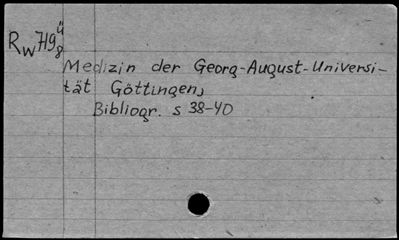 Rw 719 ü
8
Medizin der Georg-August-Universi-
tät Göttingen,
Bibliogr. s 38-40